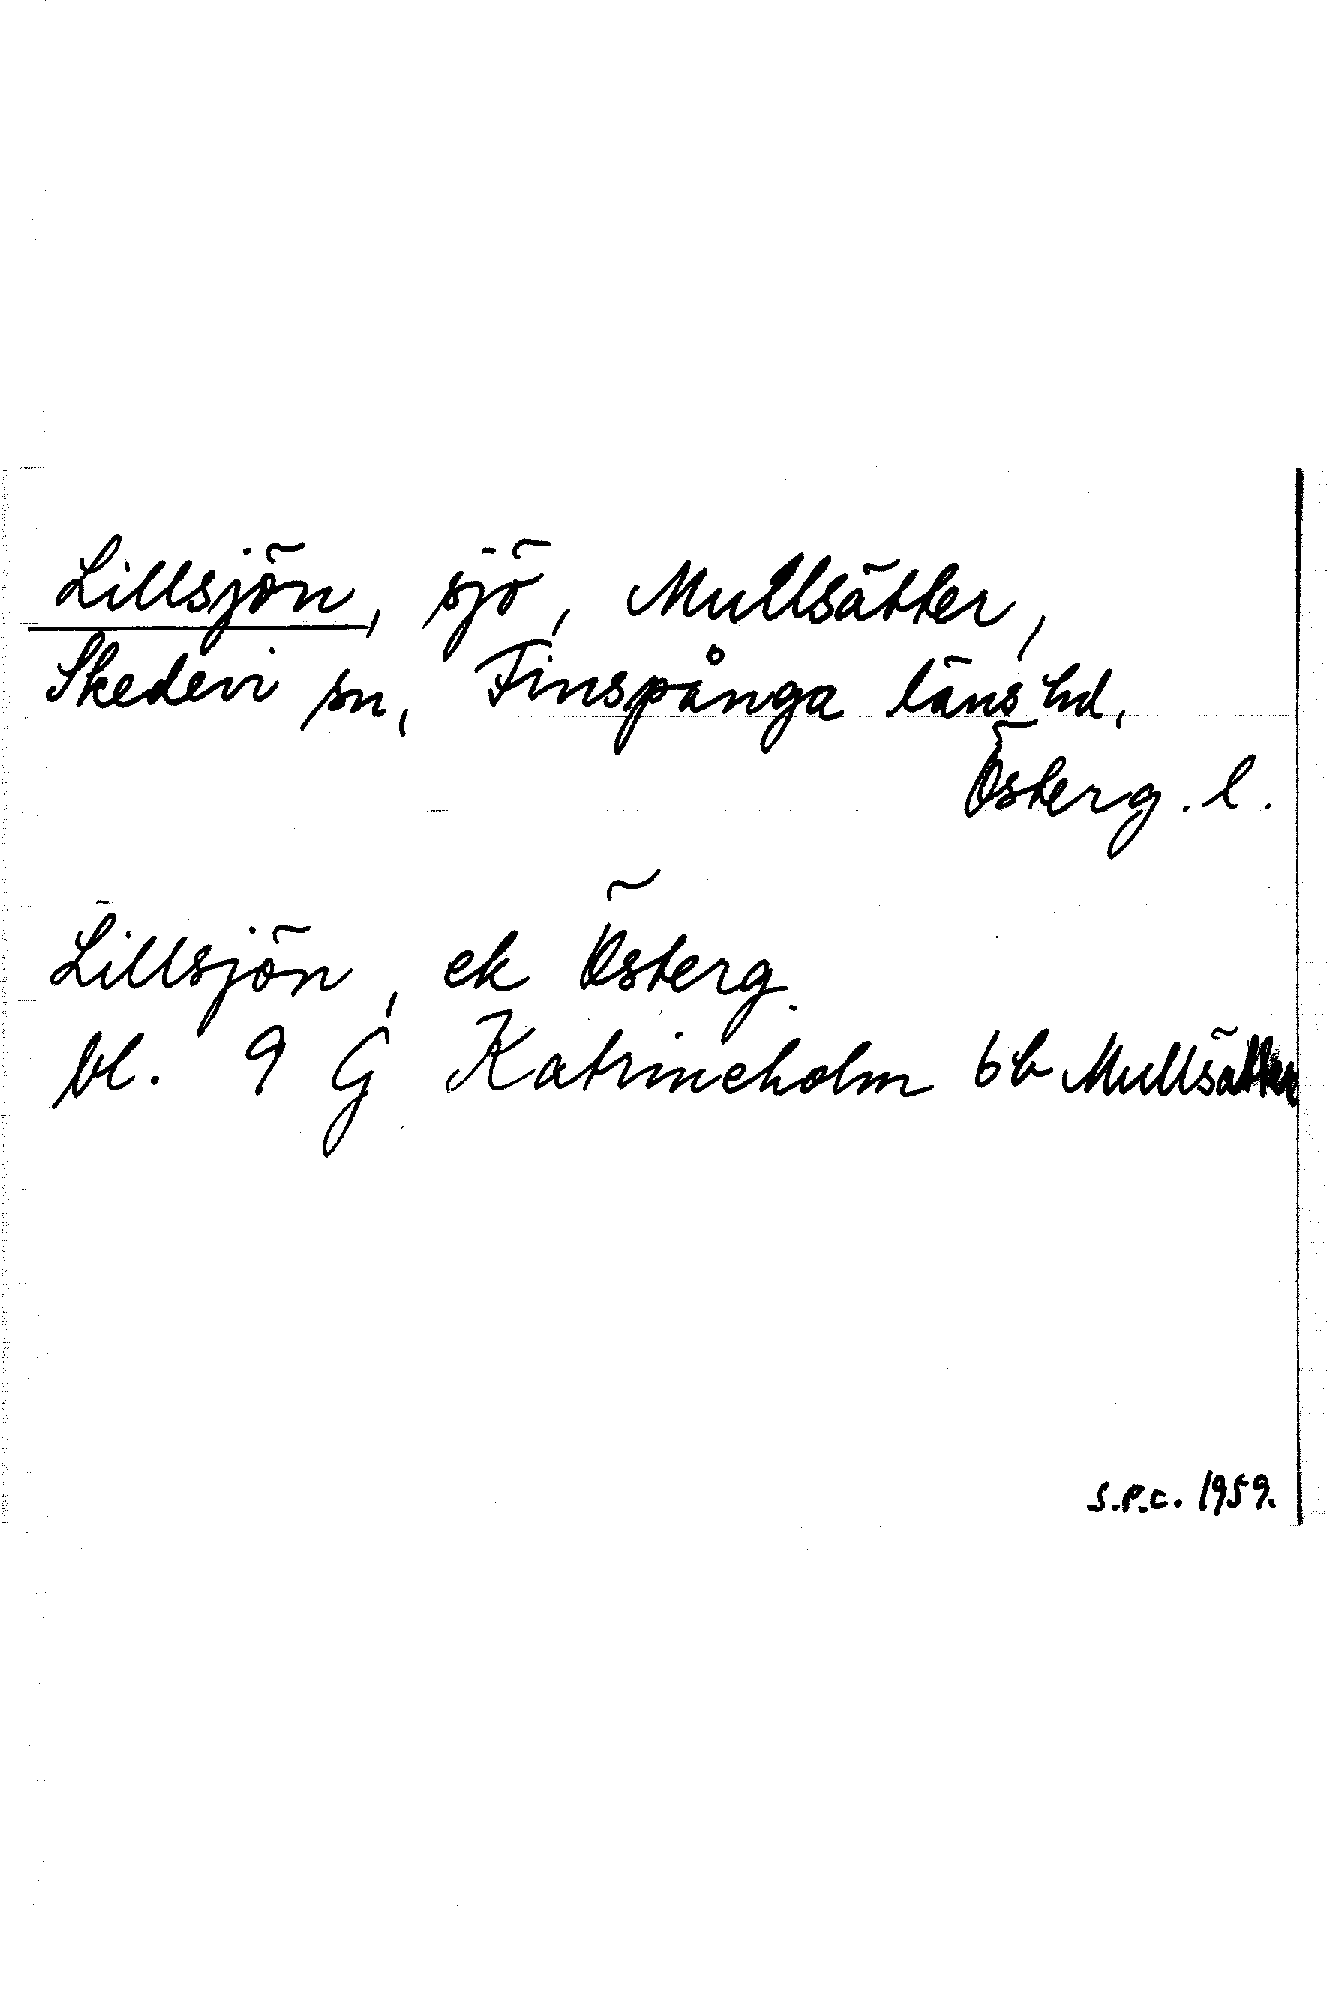 Lillsjön, sjö, Mullsätter,
Skedevi sn, Finspånga läns hd,
Österg. l.
Lillsjön, ek Österg.
bl. 9 G Katrineholm 6b Mullsätter
S.P.C. 1959.